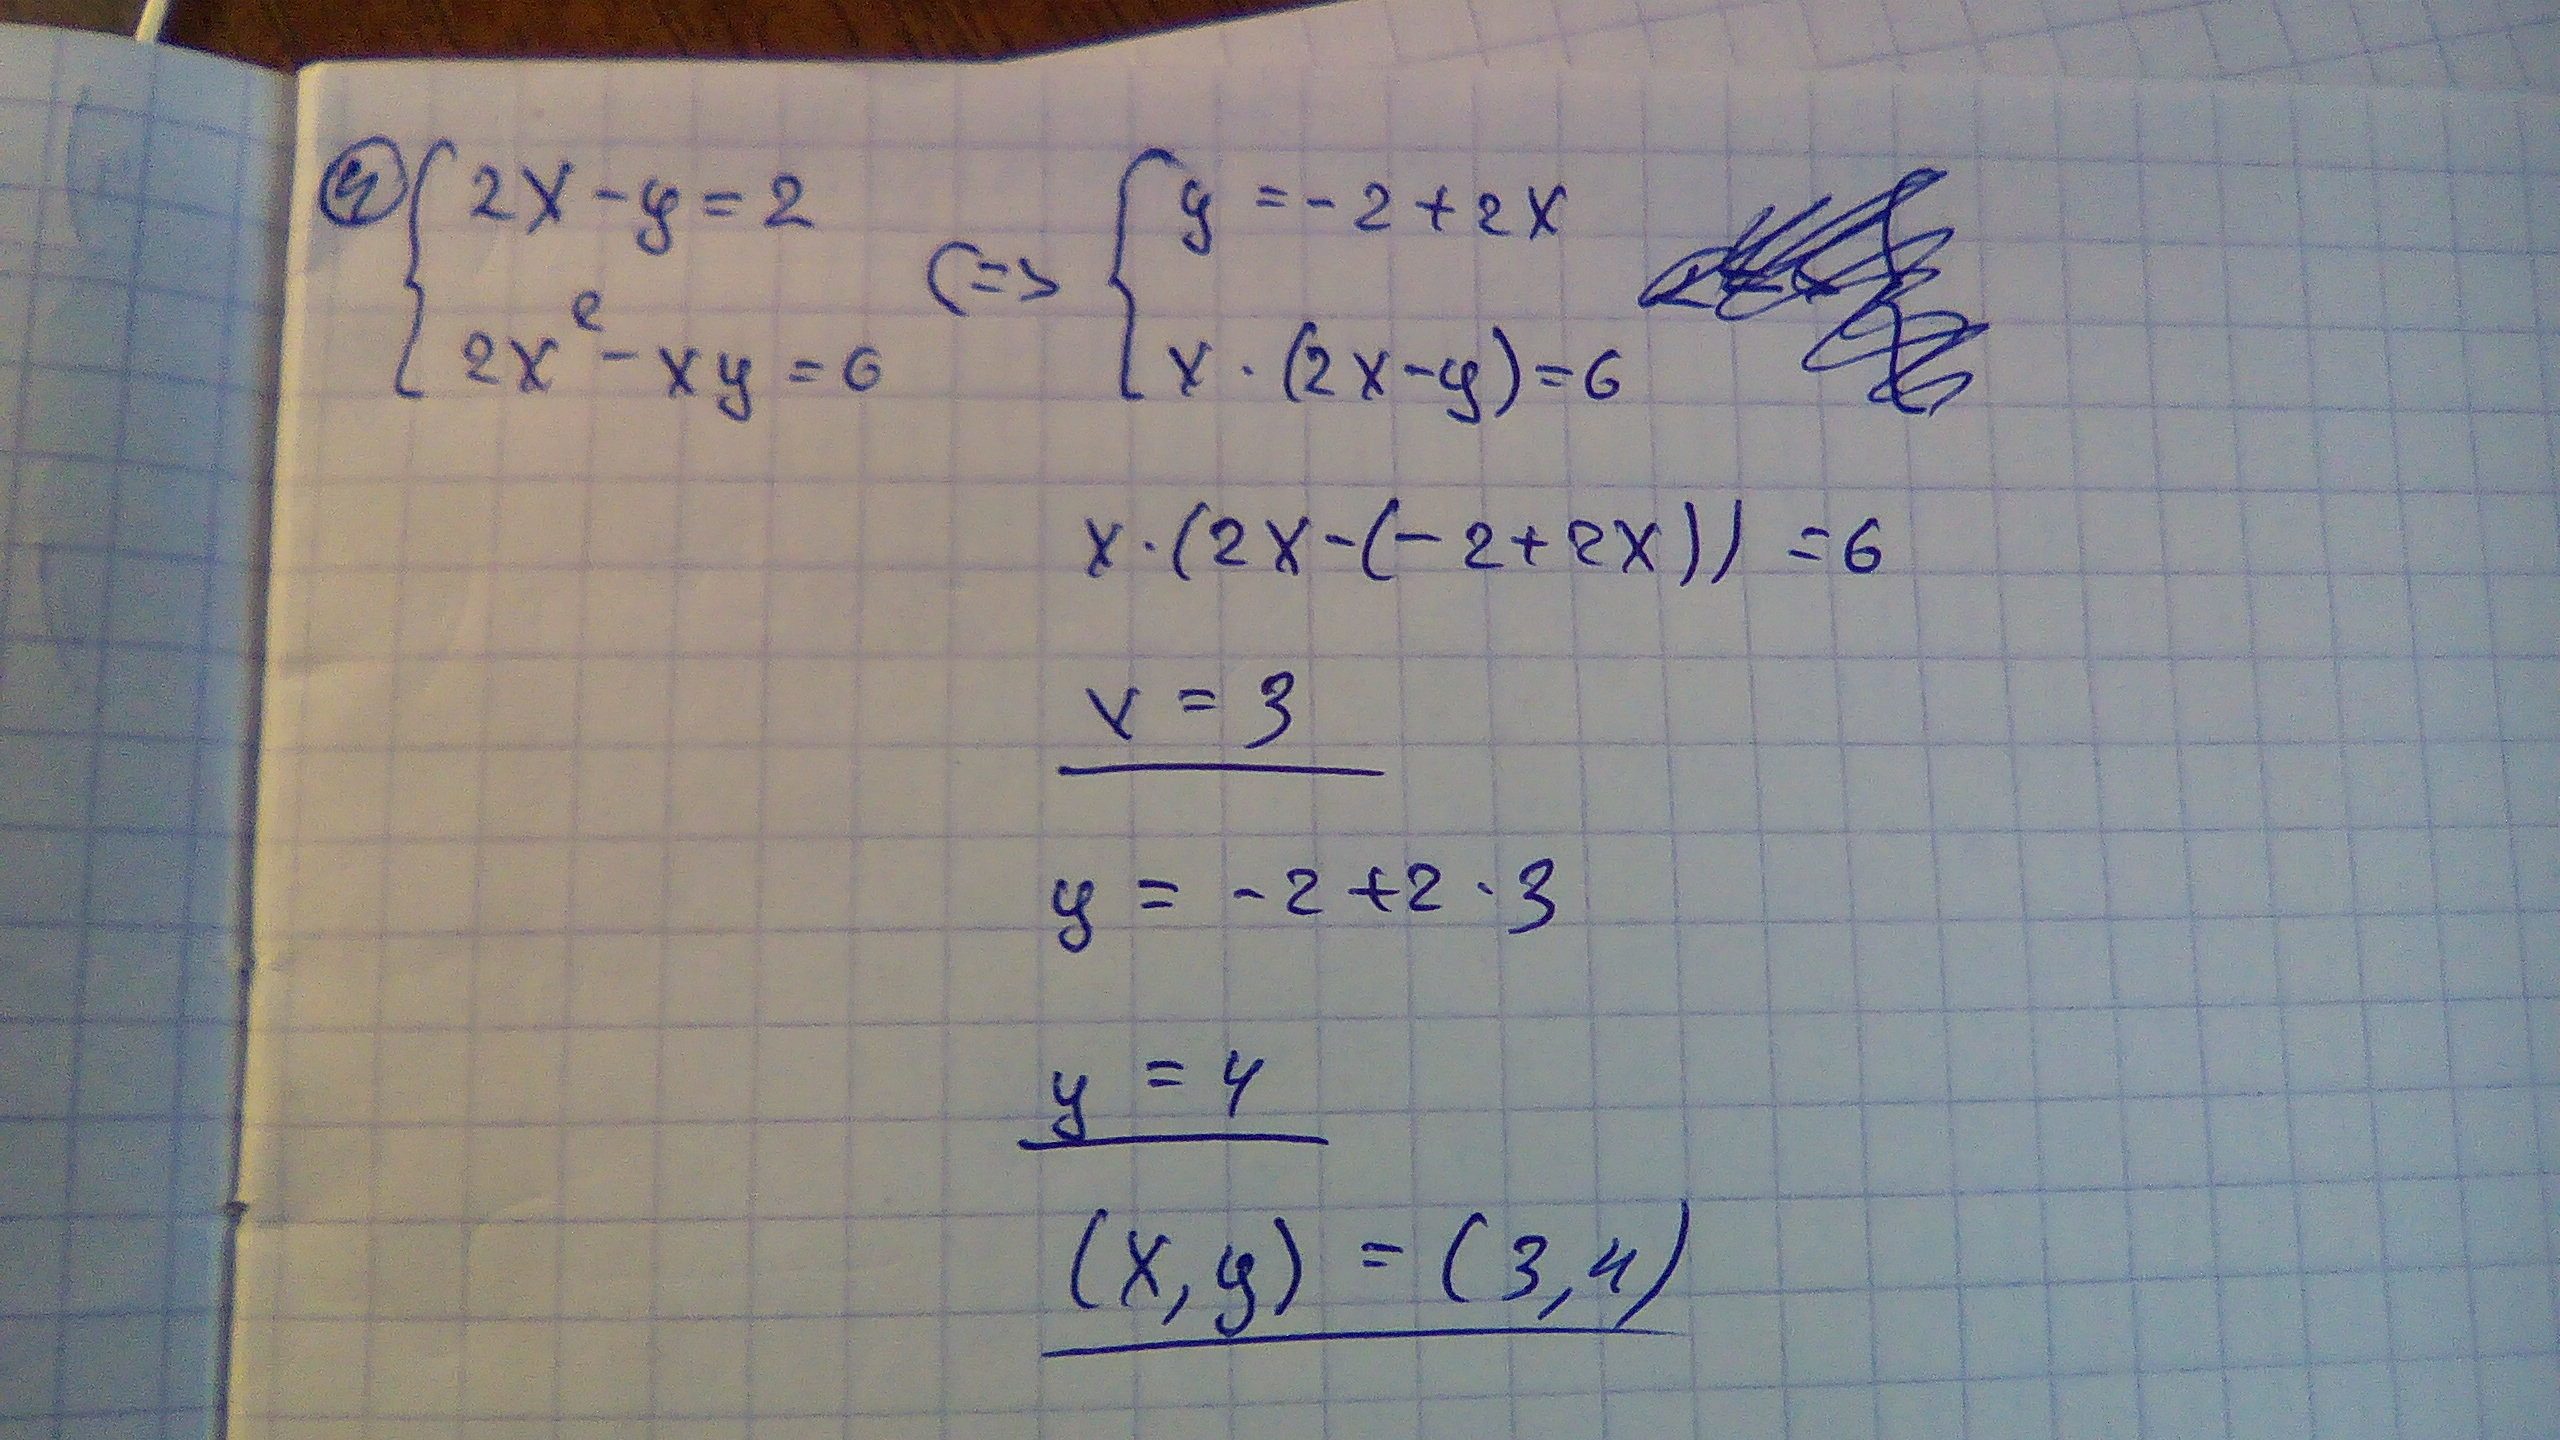 ④ { 2x - y = 2 <=> { y = -2 + 2x
2x² - xy = 6 x · (2x - y) = 6
x · (2x - (-2 + 2x)) = 6
x = 3
y = -2 + 2 · 3
y = 4
(x, y) = (3, 4)